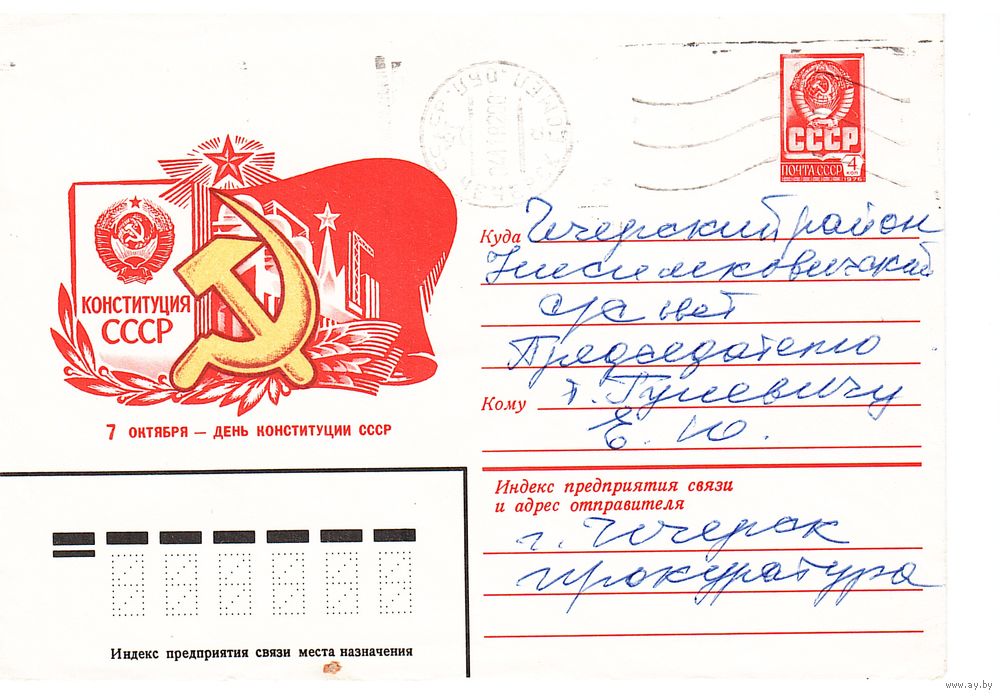 СССР
ПОЧТА СССР
4
КОП
1976
КОНСТИТУЦИЯ
СССР
7 ОКТЯБРЯ — ДЕНЬ КОНСТИТУЦИИ СССР
Куда Чечерский район
сельсовет
Председателю
Кому т. Гулевичу
Е. Ю.
Индекс предприятия связи
и адрес отправителя
г. Чечерск
прокуратура
Индекс предприятия связи места назначения
www.ay.by